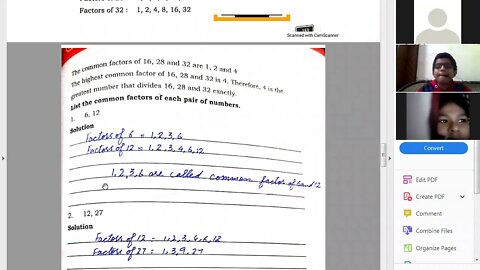 Factors of 32 : 1, 2, 4, 8, 16, 32
Scanned with CamScanner
The common factors of 16, 28 and 32 are 1, 2 and 4
The highest common factor of 16, 28 and 32 is 4. Therefore, 4 is the
greatest number that divides 16, 28 and 32 exactly.
List the common factors of each pair of numbers.
1. 6, 12
Solution
Factors of 6 = 1, 2, 3, 6
Factors of 12 = 1, 2, 3, 4, 6, 12
1, 2, 3, 6 are called common factor of 6 and 12
2. 12, 27
Solution
Factors of 12 = 1, 2, 3, 4, 6, 12
Factors of 27 = 1, 3, 9, 27
Convert
Edit PDF
Create PDF
Comment
Combine Files
Organize Pages